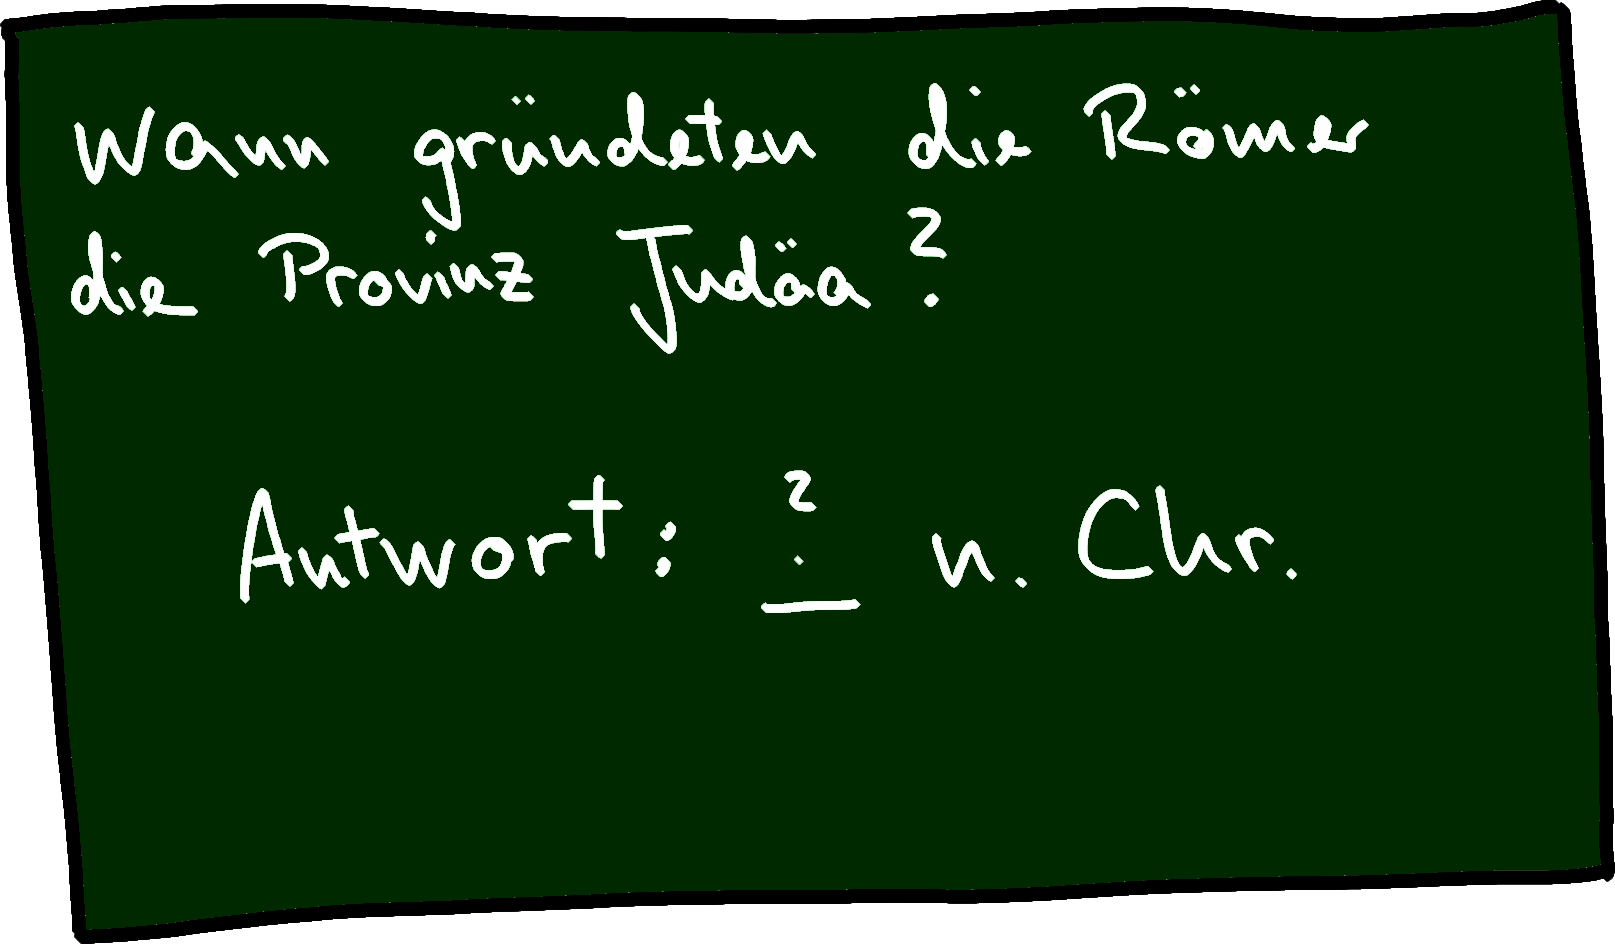 Wann gründeten die Römer
die Provinz Judäa?
Antwort: ? n. Chr.